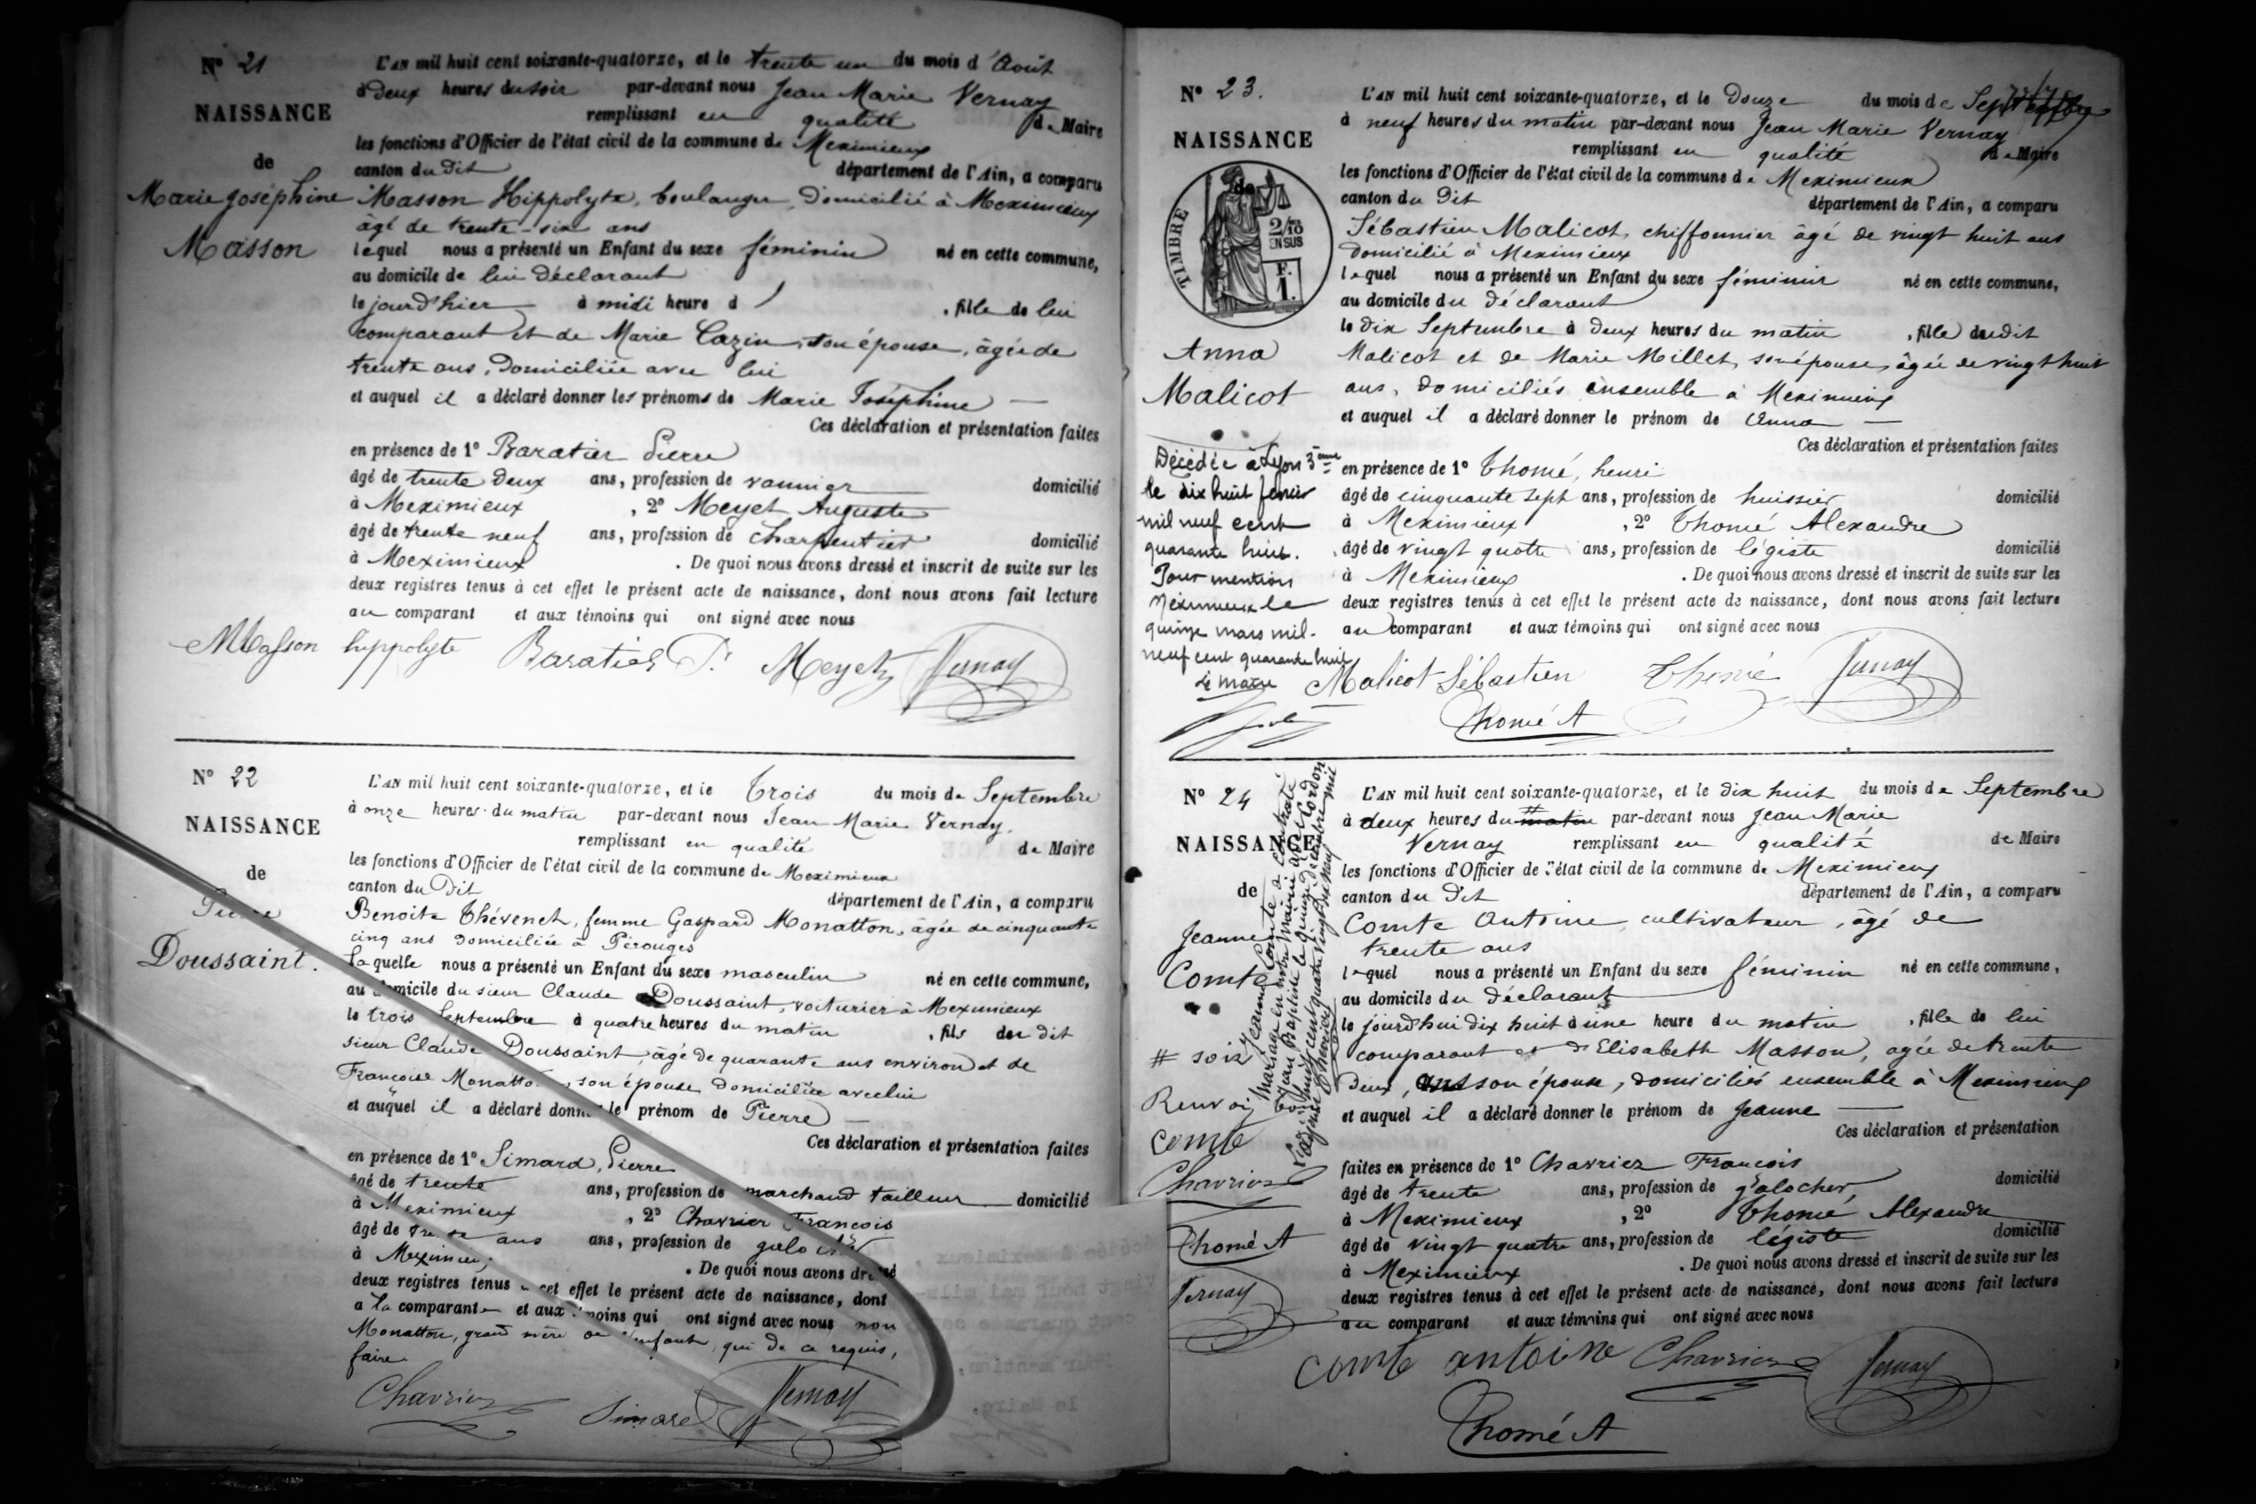 N° 21
NAISSANCE
de
Marie Joséphine
Masson
L'AN mil huit cent soixante-quatorze, et le trente un du mois d'Août
à deux heures du soir par-devant nous Jean Marie Vernay
remplissant en qualité de Maire
les fonctions d'Officier de l'état civil de la commune de Meximieux
canton du dit département de l'Ain, a comparu
Masson Hippolyte, boulanger, domicilié à Meximieux
âgé de trente-six ans
lequel nous a présenté un Enfant du sexe féminin né en cette commune,
au domicile de lui déclarant
le jour d'hier à midi heure d , fille de lui
comparant et de Marie Cazin, son épouse, âgée de
trente ans, domiciliée avec lui
et auquel il a déclaré donner les prénoms de Marie Joséphine
Ces déclaration et présentation faites
en présence de 1° Baratier Pierre
âgé de trente deux ans, profession de vannier domicilié
à Meximieux , 2° Meyet Auguste
âgé de trente neuf ans, profession de Charpentier domicilié
à Meximieux . De quoi nous avons dressé et inscrit de suite sur les
deux registres tenus à cet effet le présent acte de naissance, dont nous avons fait lecture
au comparant et aux témoins qui ont signé avec nous
Masson hippolyte Baratier P. Meyet Vernay
N° 22
NAISSANCE
de
Pierre
Doussaint.
L'AN mil huit cent soixante-quatorze, et le Trois du mois de Septembre
à onze heures du matin par-devant nous Jean Marie Vernay,
remplissant en qualité de Maire
les fonctions d'Officier de l'état civil de la commune de Meximieux
canton du Dit département de l'Ain, a comparu
Benoite Thévenet, femme Gaspard Monatton, âgée de cinquante
cinq ans domiciliée à Pérouges
laquelle nous a présenté un Enfant du sexe masculin né en cette commune,
au domicile du sieur Claude Doussaint, voiturier à Meximieux
le trois Septembre à quatre heures du matin , fils du dit
sieur Claude Doussaint, âgé de quarante ans environ et de
Françoise Monatton, son épouse domiciliée avec lui
et auquel il a déclaré donner le prénom de Pierre
Ces déclaration et présentation faites
en présence de 1° Simard, Pierre
âgé de trente ans, profession de marchand tailleur domicilié
à Meximieux , 2° Chavrier François
âgé de trente ans ans, profession de galocher
à Meximieux . De quoi nous avons dressé
deux registres tenus à cet effet le présent acte de naissance, dont
a la comparante et aux témoins qui ont signé avec nous non
Monatton, grand mère de l'enfant, qui de ce requis,
faire
Chavrier Simard Vernay
N° 23.
NAISSANCE
de
TIMBRE
2/10 EN SUS
F. 1.
Anna
Malicot
Décédée à Lyon 3ème
le dix huit février
mil neuf cent
quarante huit.
Pour mention
Meximieux le
quinze mars mil
neuf cent quarante huit
Le Maire
L'AN mil huit cent soixante-quatorze, et le Douze du mois de Septembre
à neuf heures du matin par-devant nous Jean Marie Vernay
remplissant en qualité de Maire
les fonctions d'Officier de l'état civil de la commune de Meximieux
canton du Dit département de l'Ain, a comparu
Sébastien Malicot, chiffonnier âgé de vingt huit ans
domicilié à Meximieux
lequel nous a présenté un Enfant du sexe féminin né en cette commune,
au domicile du déclarant
le dix Septembre à deux heures du matin , fille du dit
Malicot et de Marie Millet, son épouse, âgée de vingt huit
ans, domiciliés ensemble à Meximieux
et auquel il a déclaré donner le prénom de Anna
Ces déclaration et présentation faites
en présence de 1° Thomé, henri
âgé de cinquante sept ans, profession de huissier domicilié
à Meximieux , 2° Thomé Alexandre
âgé de vingt quatre ans, profession de légiste domicilié
à Meximieux . De quoi nous avons dressé et inscrit de suite sur les
deux registres tenus à cet effet le présent acte de naissance, dont nous avons fait lecture
au comparant et aux témoins qui ont signé avec nous
Malicot Sébastien Thomé Vernay
Thomé A
N° 24
NAISSANCE
de
Jeanne
Comte
# soir
Renvoi
comte
Chavrier
Thomé A
Vernay
Jeanne Comte a contracté
mariage en notre mairie avec
Jean Baptiste Cordon
le quinze décembre mil
huit cent quatre vingt
L'AN mil huit cent soixante-quatorze, et le dix huit du mois de Septembre
à deux heures du matin # par-devant nous Jean Marie
Vernay remplissant en qualité de Maire
les fonctions d'Officier de l'état civil de la commune de Meximieux
canton du Dit département de l'Ain, a comparu
Comte Antoine, cultivateur, âgé de
trente ans
lequel nous a présenté un Enfant du sexe féminin né en cette commune,
au domicile du déclarant
le jourd'hui dix huit à une heure du matin , fille de lui
comparant et d'Elisabeth Masson, agée de trente
deux, ans son épouse, domiciliés ensemble à Meximieux
et auquel il a déclaré donner le prénom de Jeanne
Ces déclaration et présentation
faites en présence de 1° Chavrier François
âgé de trente ans, profession de galocher domicilié
à Meximieux , 2° Thomé Alexandre
âgé de vingt quatre ans, profession de légiste domicilié
à Meximieux . De quoi nous avons dressé et inscrit de suite sur les
deux registres tenus à cet effet le présent acte de naissance, dont nous avons fait lecture
au comparant et aux témoins qui ont signé avec nous
comte antoine Chavrier Vernay
Thomé A